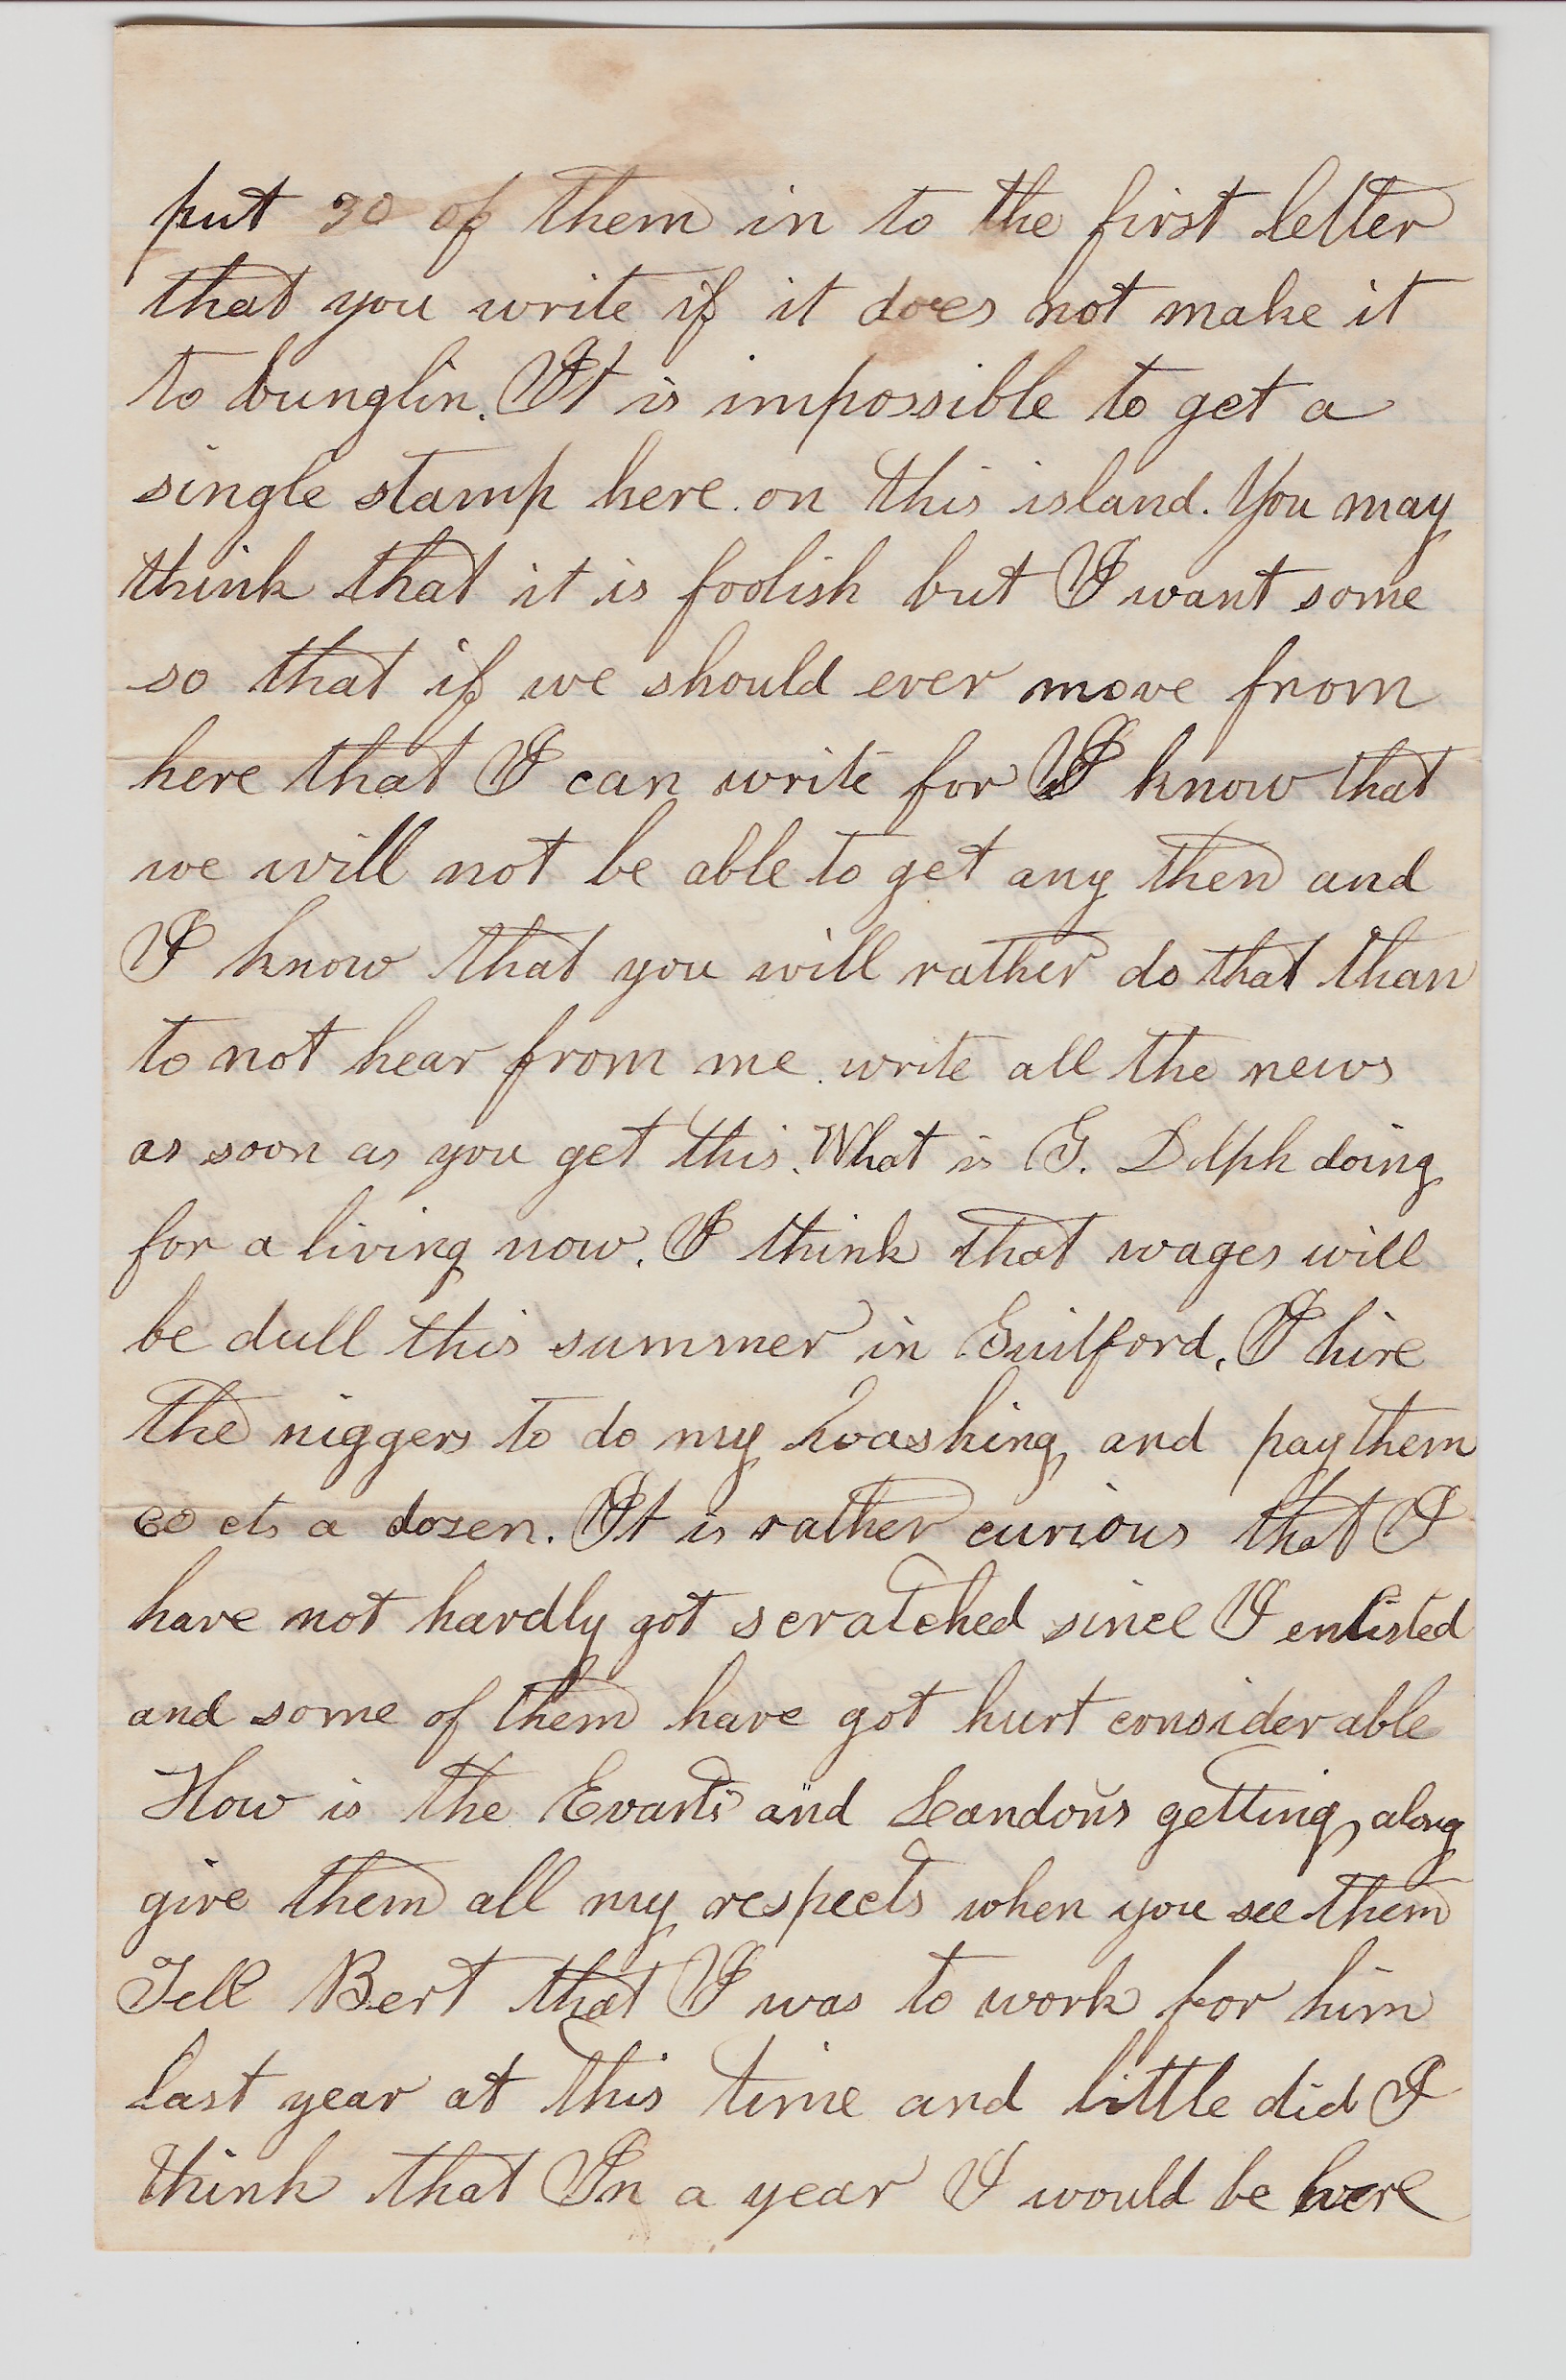 put 30 of them in to the first letter
that you write if it does not make it
to bunglin. It is impossible to get a
single stamp here on this island. You may
think that it is foolish but I want some
so that if we should ever move from
here that I can write for I know that
we will not be able to get any then and
I know that you will rather do that than
to not hear from me. write all the news
as soon as you get this. What is G. Dolph doing
for a living now. I think that wages will
be dull this summer in Guilford. I hire
the niggers to do my washing and pay them
60 cts a dozen. It is rather curious that I
have not hardly got scratched since I enlisted
and some of them have got hurt considerable
How is the Evarts and Landons getting along
give them all my respects when you see them
Tell Bert that I was to work for him
last year at this time and little did I
think that In a year I would be here